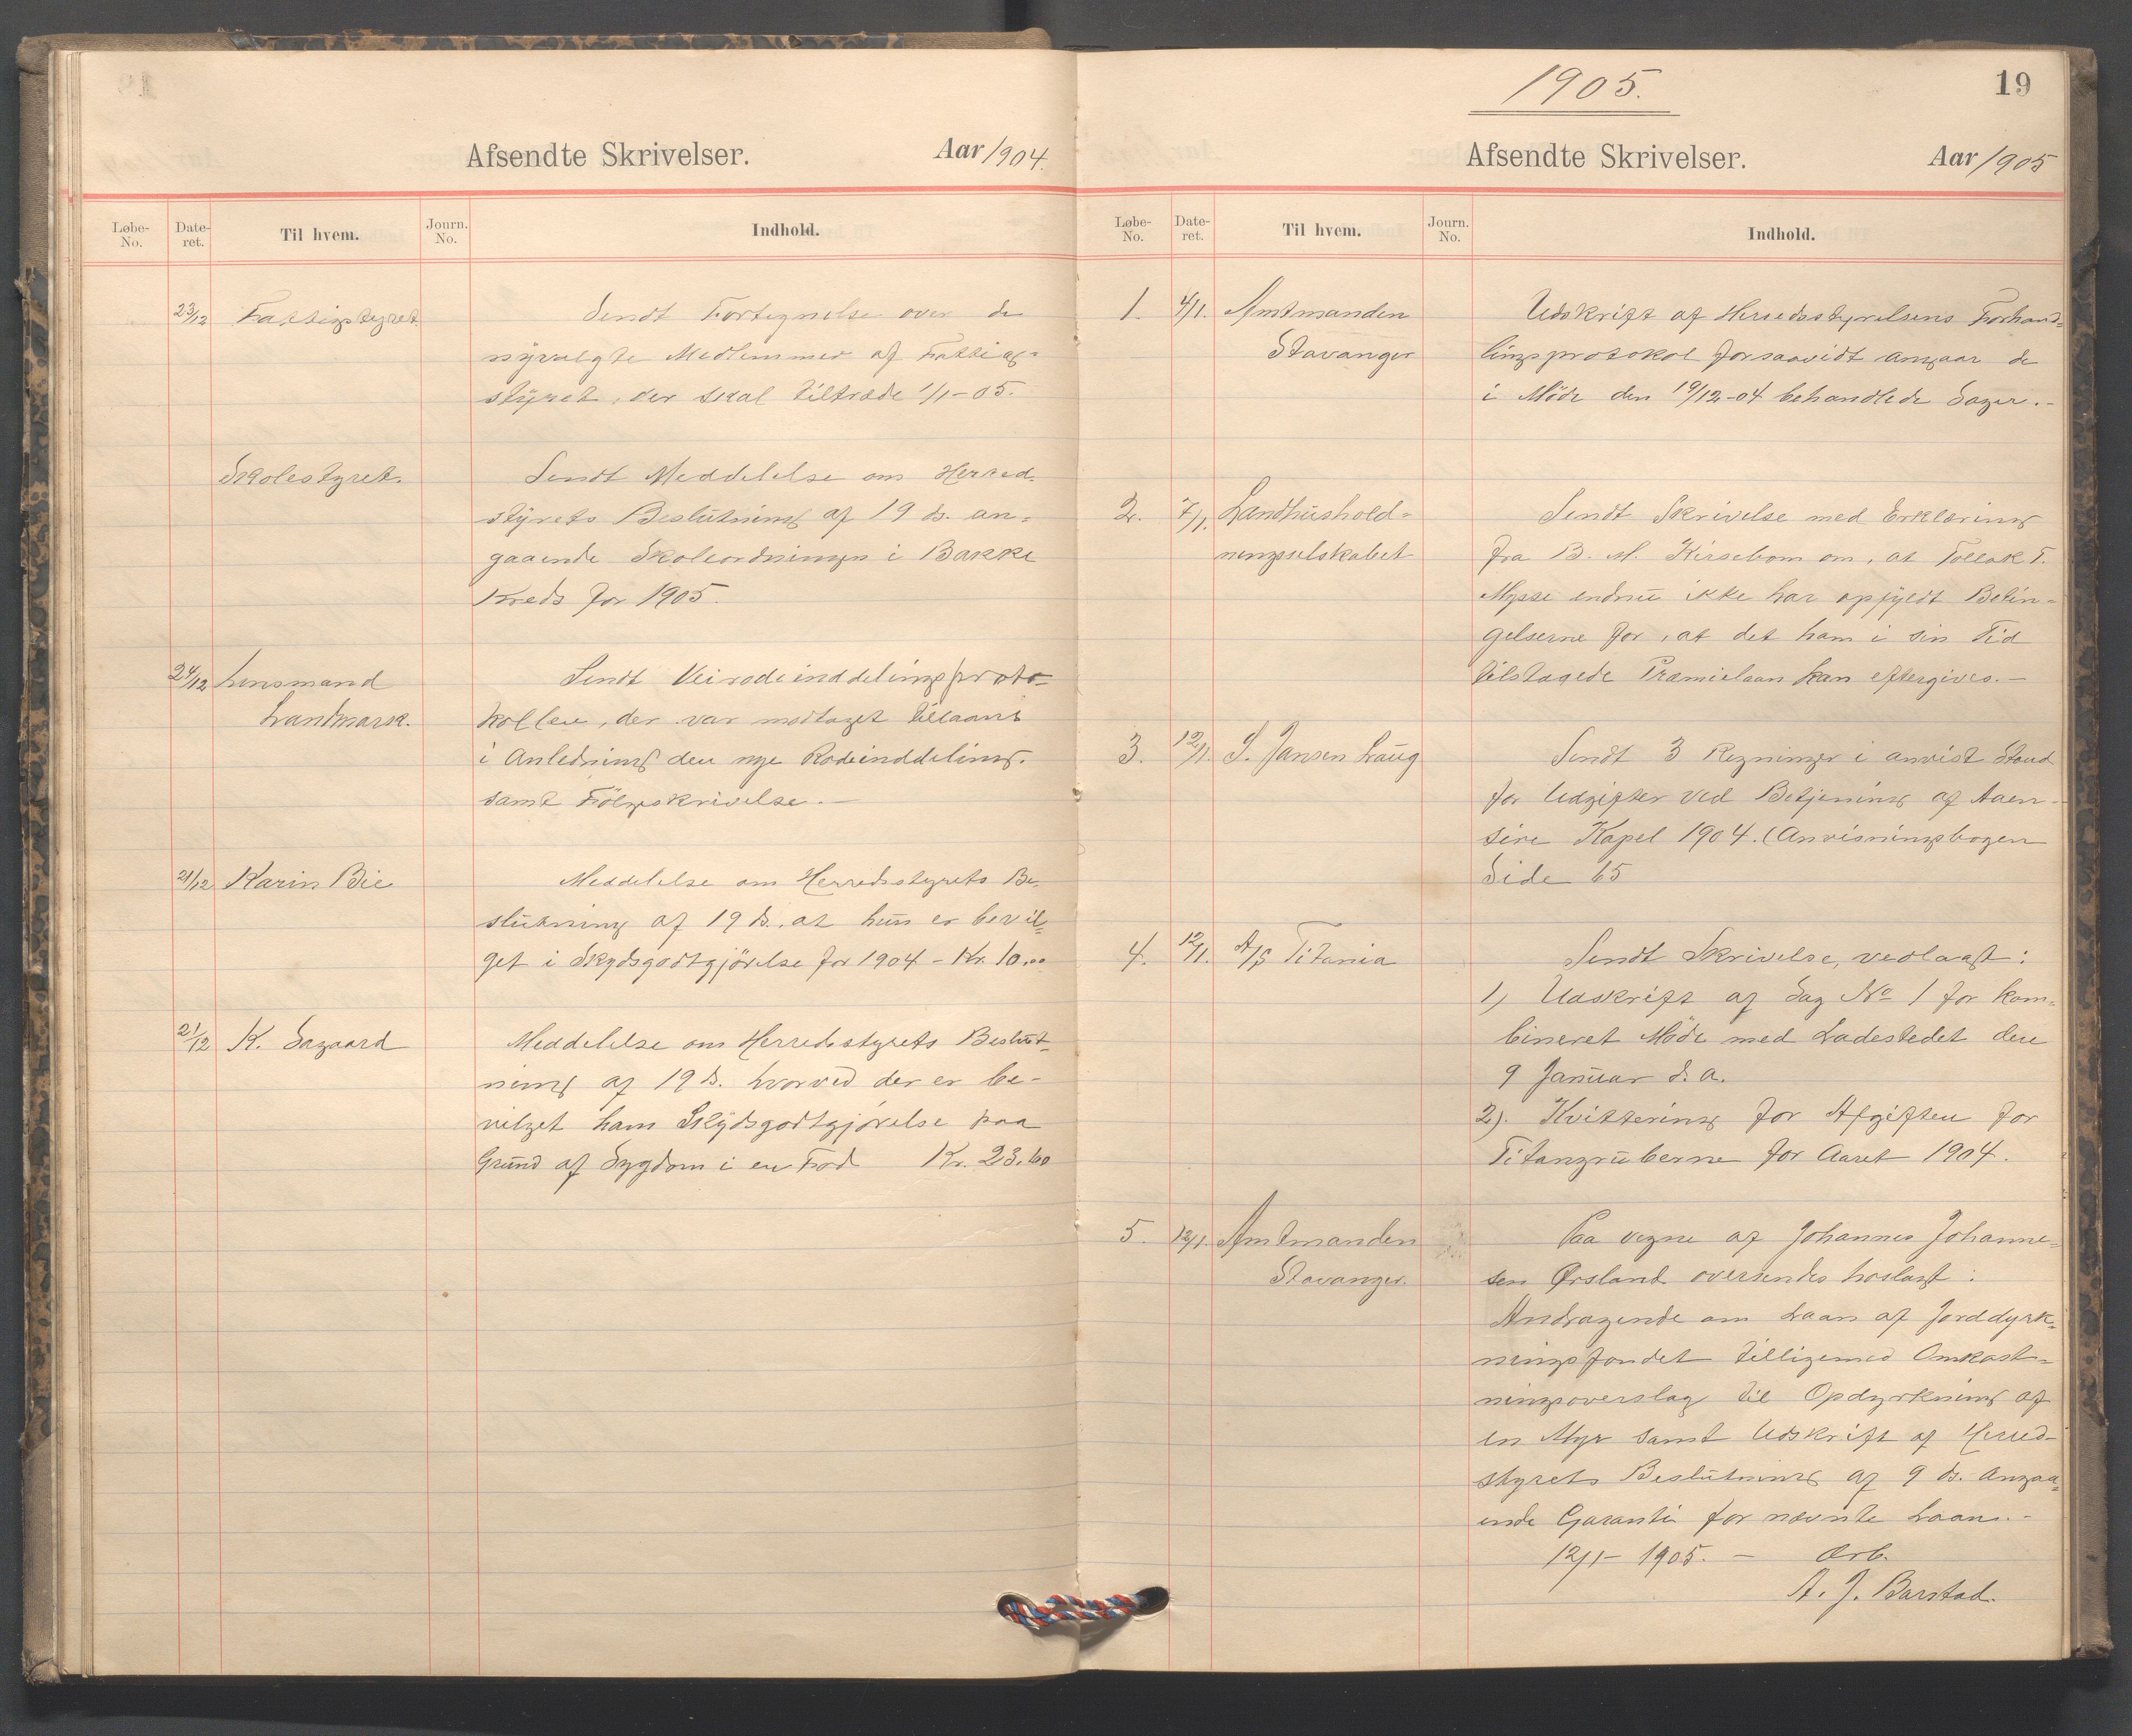 Afsendte Skrivelser. Aar 1904.
Løbe-No. Date-ret. Til hvem. Journ. No. Indhold.
23/12 Fattigstyret Sendt Fortegnelse over de
nyvalgte Medlemmer af Fattig-
styret, der skal tiltræde 1/1-05.
Skolestyret. Sendt Meddelelse om Herred-
styrets Beslutning af 19 ds. an-
gaaende Skoleordningen i Bakke
Kreds for 1905.
24/12 Lensmand Sendt Veirodeinddelingsproto-
Lantmark. kollen, der var modtaget tillaans
i Anledning den nye Rodeinddeling.
samt Følgeskrivelse.-
21/12 Karin Bie Meddelelse om Herredsstyrets Be-
slutning af 19 ds. at hun er bevil-
get i Skydsgodtgjörelse for 1904 - Kr. 10.00
21/12 K. Sagaard Meddelelse om Herredsstyrets Beslut-
ning af 19 ds. hvorved der er be-
vilget ham Skydsgodtgjörelse paa
Grund af Sygdom i en Fod Kr. 23.60
1905. 19
Afsendte Skrivelser. Aar 1905
Løbe-No. Date-ret. Til hvem. Journ. No. Indhold.
1. 4/1. Amtmanden Udskrift af Herredsstyrelsens Forhand-
Stavanger lingsprotokol forsaavidt angaar de
i Möde den 19/12-04 behandlede Sager.-
2. 7/1. Landhushold- Sendt Skrivelse med Erklæring
ningsselskabet fra B. M. Kirsebom om, at Tollak T.
Mysse endnu ikke har opfyldt Betin-
gelserne for, at det ham i sin Tid
tilstagede Præmielaan kan eftergives.-
3. 12/1. S. Jansen Laug Sendt 3 Regninger i anvist Stand
for Udgifter ved Betjening af Aaen-
sire Kapel 1904. (Anvisningsbogen
Side 65
4. 12/1. A/S Titania Sendt Skrivelse, vedlagt:
1) Udskrift af Sag No 1 for kom-
bineret Möde med Ladestedet den
9 Januar d.a.
2). Kvittering for Afgiften for
Titangruberne for Aaret 1904.
5. 12/1. Amtmanden Paa vegne af Johannes Johanne-
Stavanger. sen Ørsland oversendes hoslagt:
Andragende om Laan af Jorddyrk-
ningsfondet tilligemed Omkost-
ningsoverslag til Opdyrkning af
en Myr samt Udskrift af Herred-
styrets Beslutning af 9 ds. angaa-
ende Garanti for nævnte Laan.-
12/1-1905. - Ærb.
A. J. Barstad.